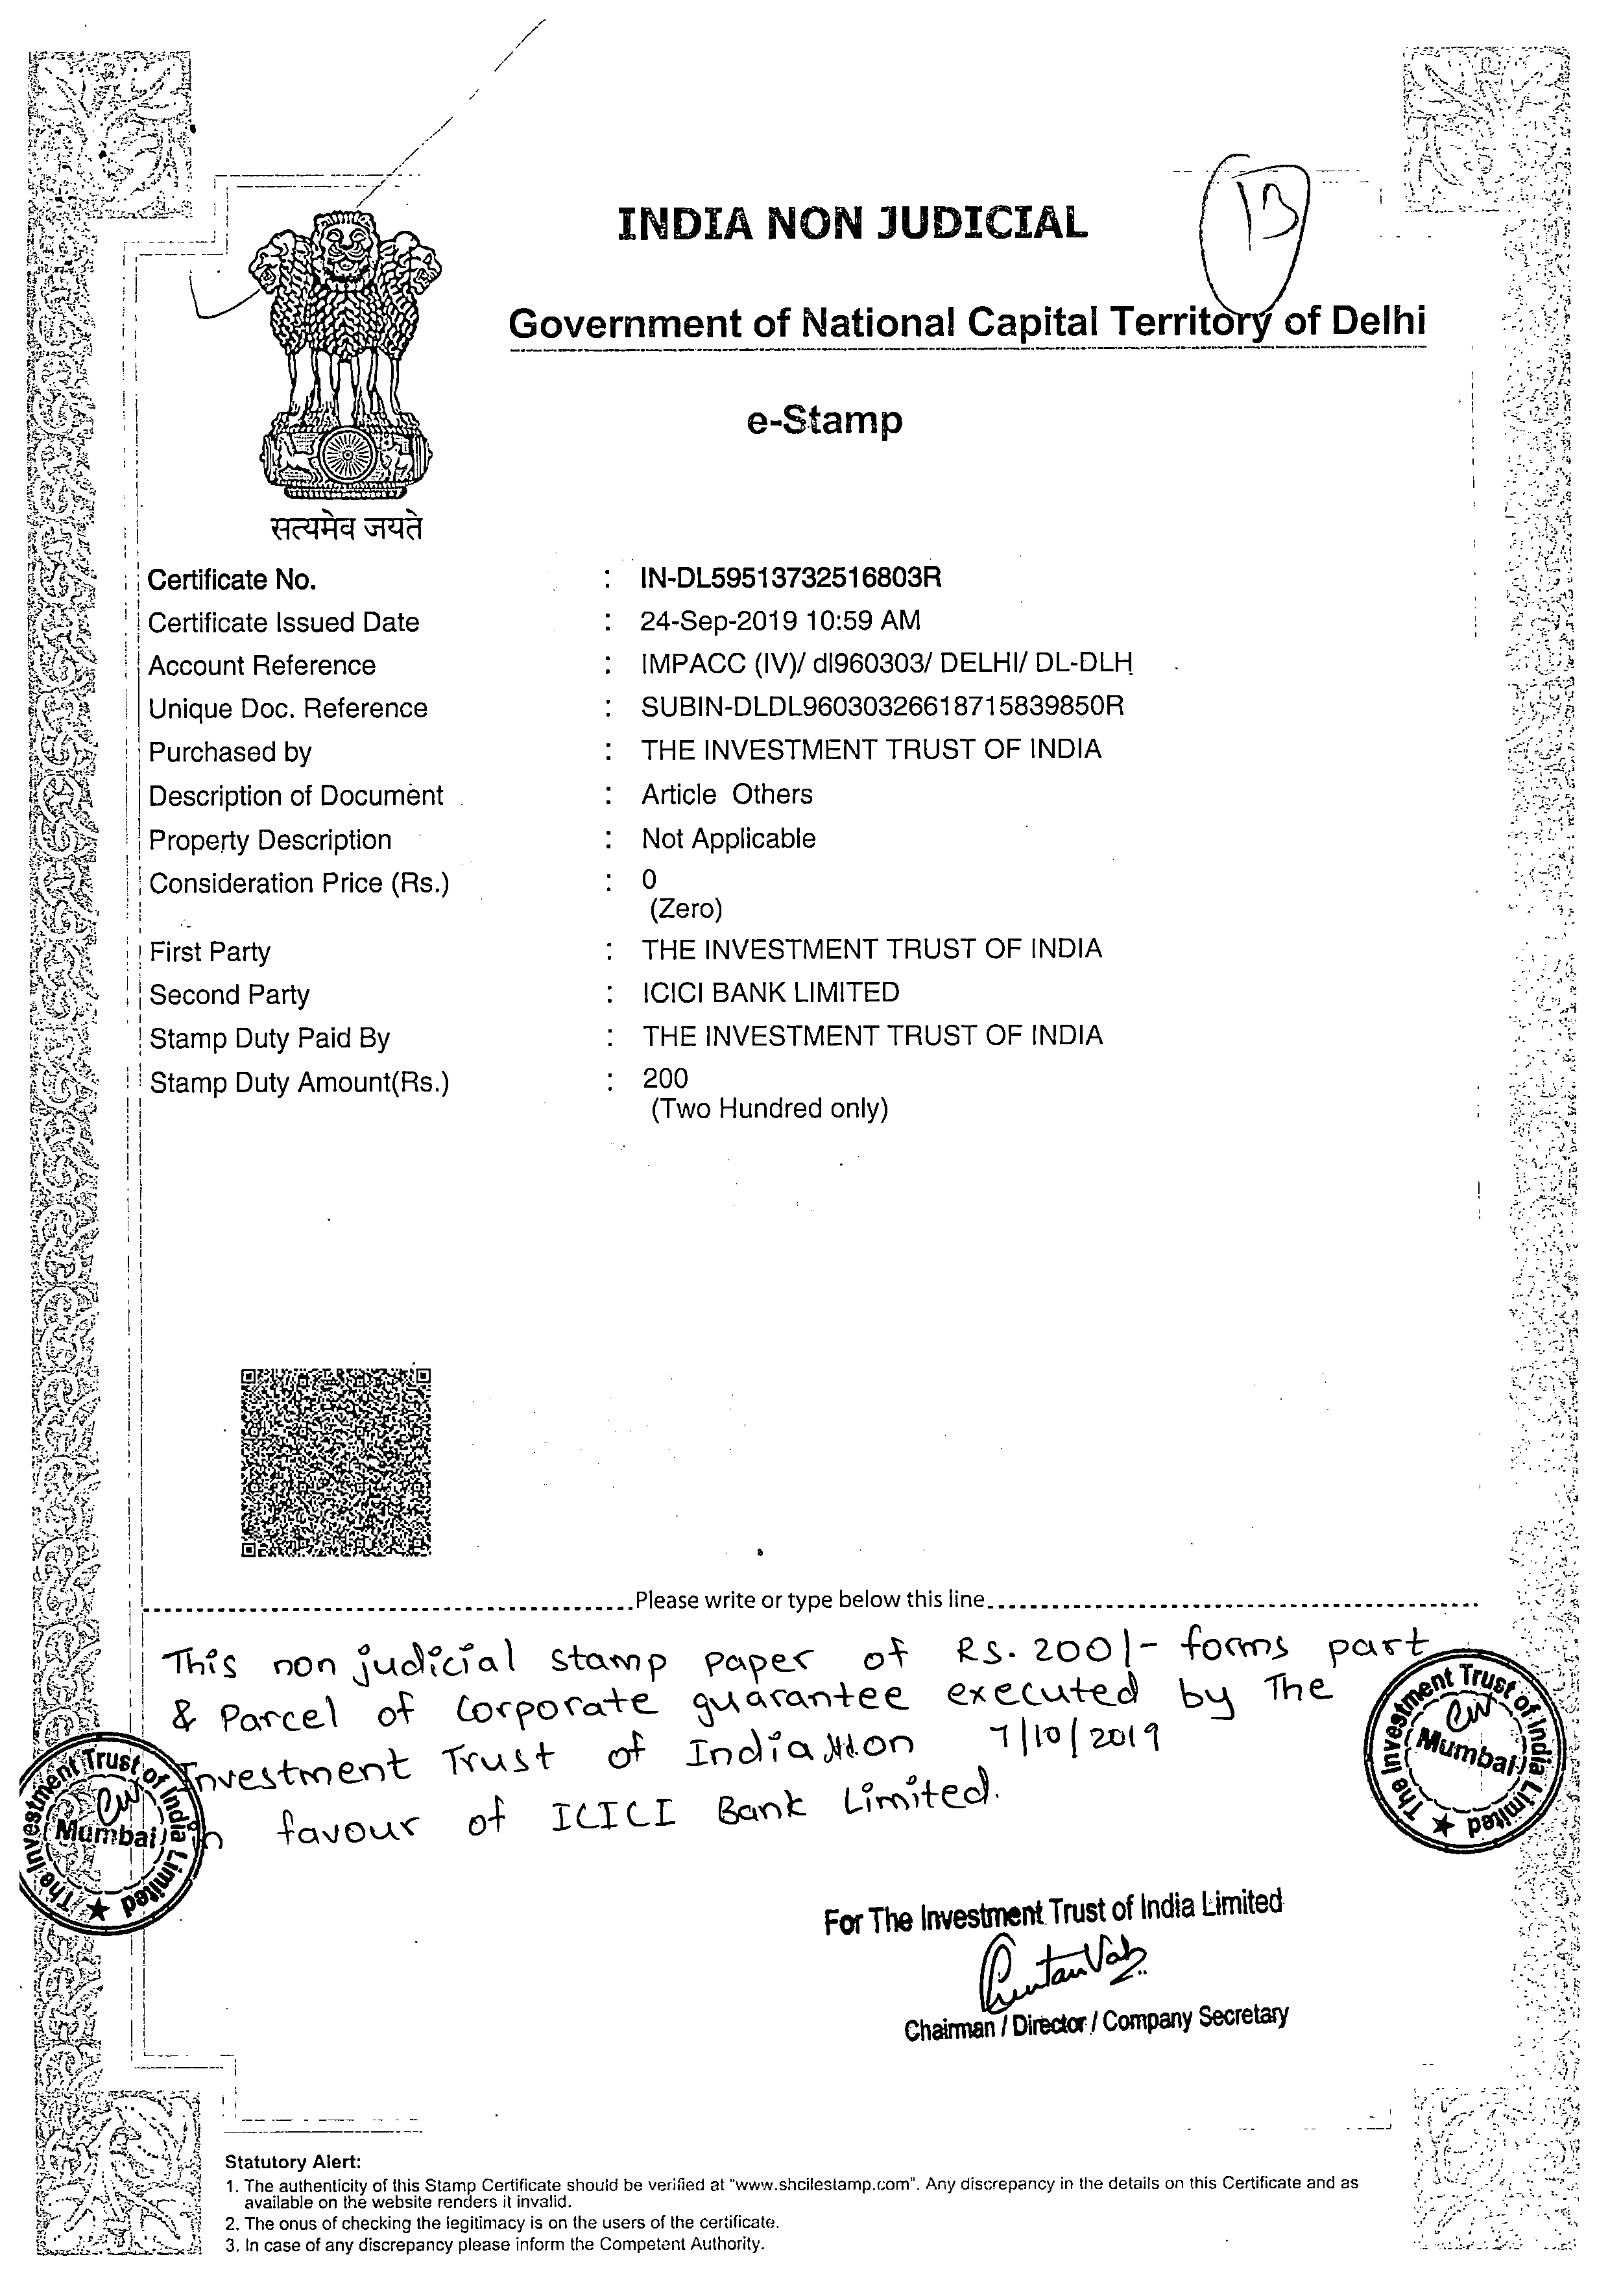 INDIA NON JUDICIAL
13
Government of National Capital Territory of Delhi
e-Stamp
सत्यमेव जयते
Certificate No. : IN-DL59513732516803R
Certificate Issued Date : 24-Sep-2019 10:59 AM
Account Reference : IMPACC (IV)/ dl960303/ DELHI/ DL-DLH
Unique Doc. Reference : SUBIN-DLDL96030326618715839850R
Purchased by : THE INVESTMENT TRUST OF INDIA
Description of Document : Article Others
Property Description : Not Applicable
Consideration Price (Rs.) : 0
(Zero)
First Party : THE INVESTMENT TRUST OF INDIA
Second Party : ICICI BANK LIMITED
Stamp Duty Paid By : THE INVESTMENT TRUST OF INDIA
Stamp Duty Amount(Rs.) : 200
(Two Hundred only)
Please write or type below this line
This non judicial stamp paper of Rs. 200/- forms part
& Parcel of Corporate guarantee executed by The
Investment Trust of India on 7/10/2019
in favour of ICICI Bank Limited.
The Investment Trust of India Limited
Mumbai
The Investment Trust of India Limited
Mumbai
For The Investment Trust of India Limited
Chairman / Director / Company Secretary
Statutory Alert:
1. The authenticity of this Stamp Certificate should be verified at "www.shcilestamp.com". Any discrepancy in the details on this Certificate and as
available on the website renders it invalid.
2. The onus of checking the legitimacy is on the users of the certificate.
3. In case of any discrepancy please inform the Competent Authority.